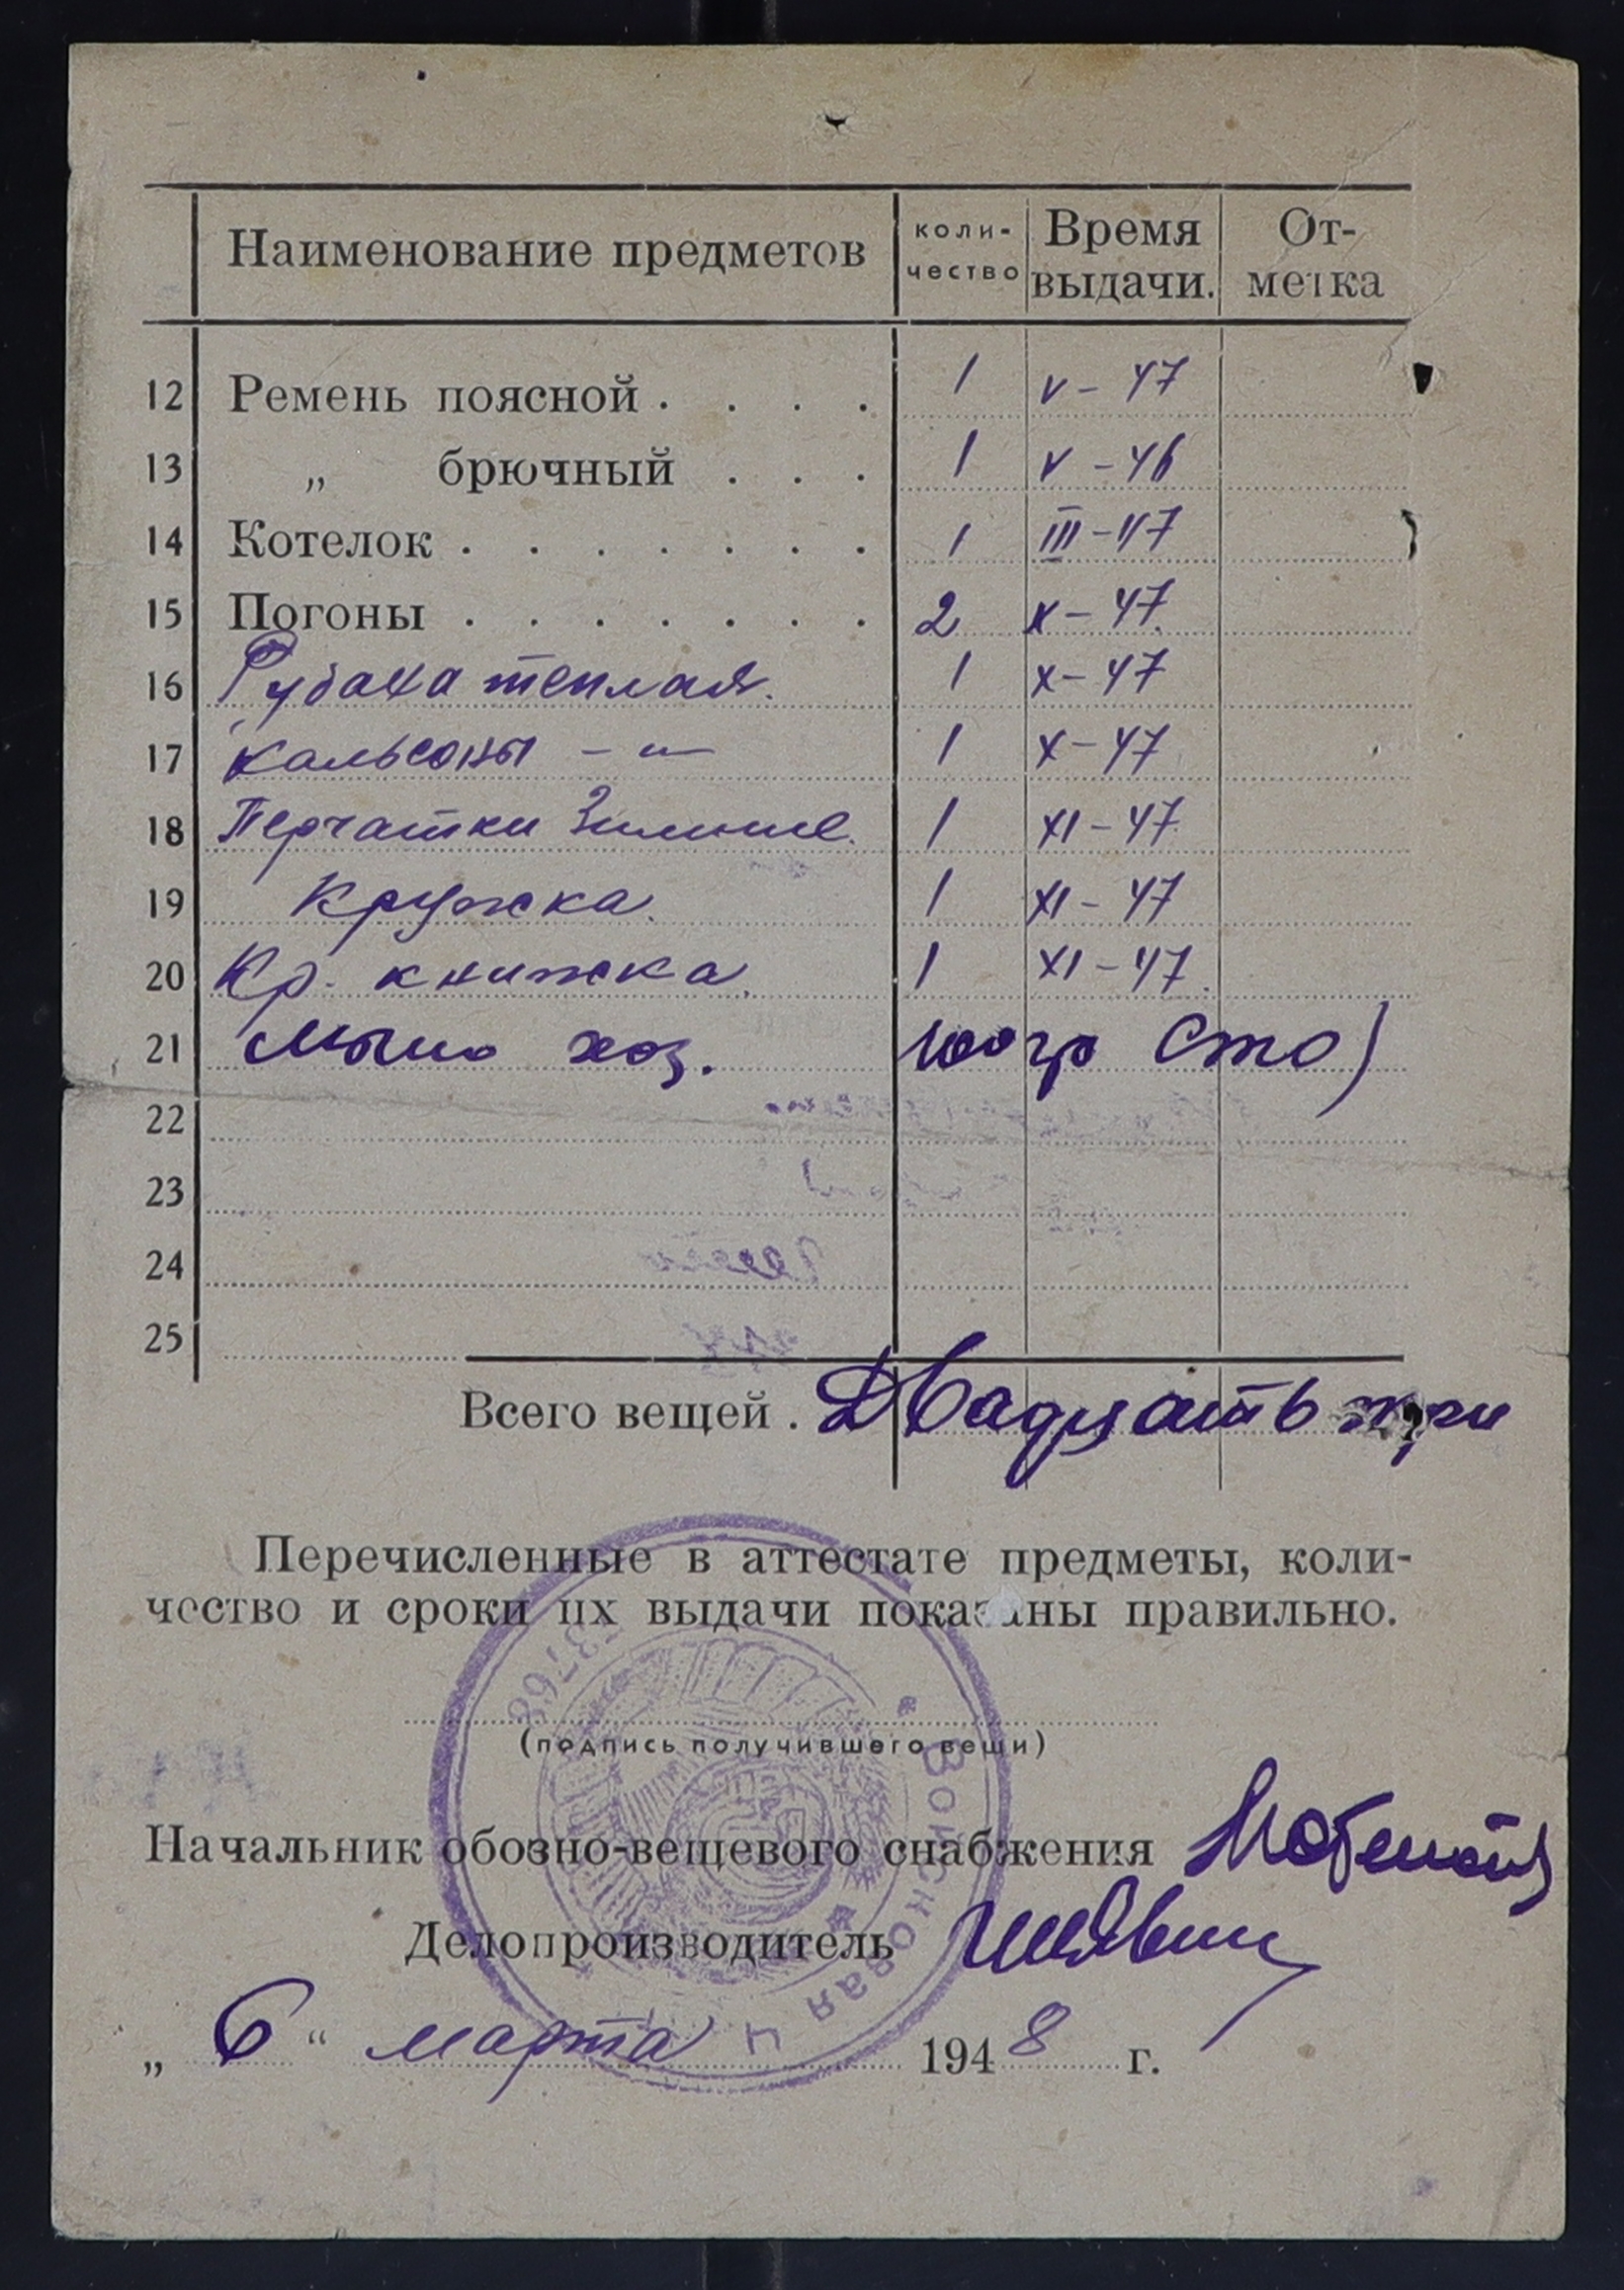 Наименование предметов коли-чество Время выдачи. От-метка
12 Ремень поясной . . . . 1 V – 47
13 „ брючный . . . 1 V – 46
14 Котелок . . . . . . . 1 III – 47
15 Погоны . . . . . . . 2 X – 47.
16 Рубаха теплая. 1 X – 47
17 Кальсоны – " – 1 X – 47
18 Перчатки зимние. 1 XI – 47.
19 Кружка. 1 XI – 47
20 Кр. книжка. 1 XI – 47.
21 Мыло хоз. 100 гр Сто)
22
23
24
25
Всего вещей . Двадцать три
Перечисленные в аттестате предметы, коли-
чество и сроки их выдачи показаны правильно.
(подпись получившего вещи)
Начальник обозно-вещевого снабжения
Делопроизводитель
„ 6 “ марта 1948 г.
Войсковая ч